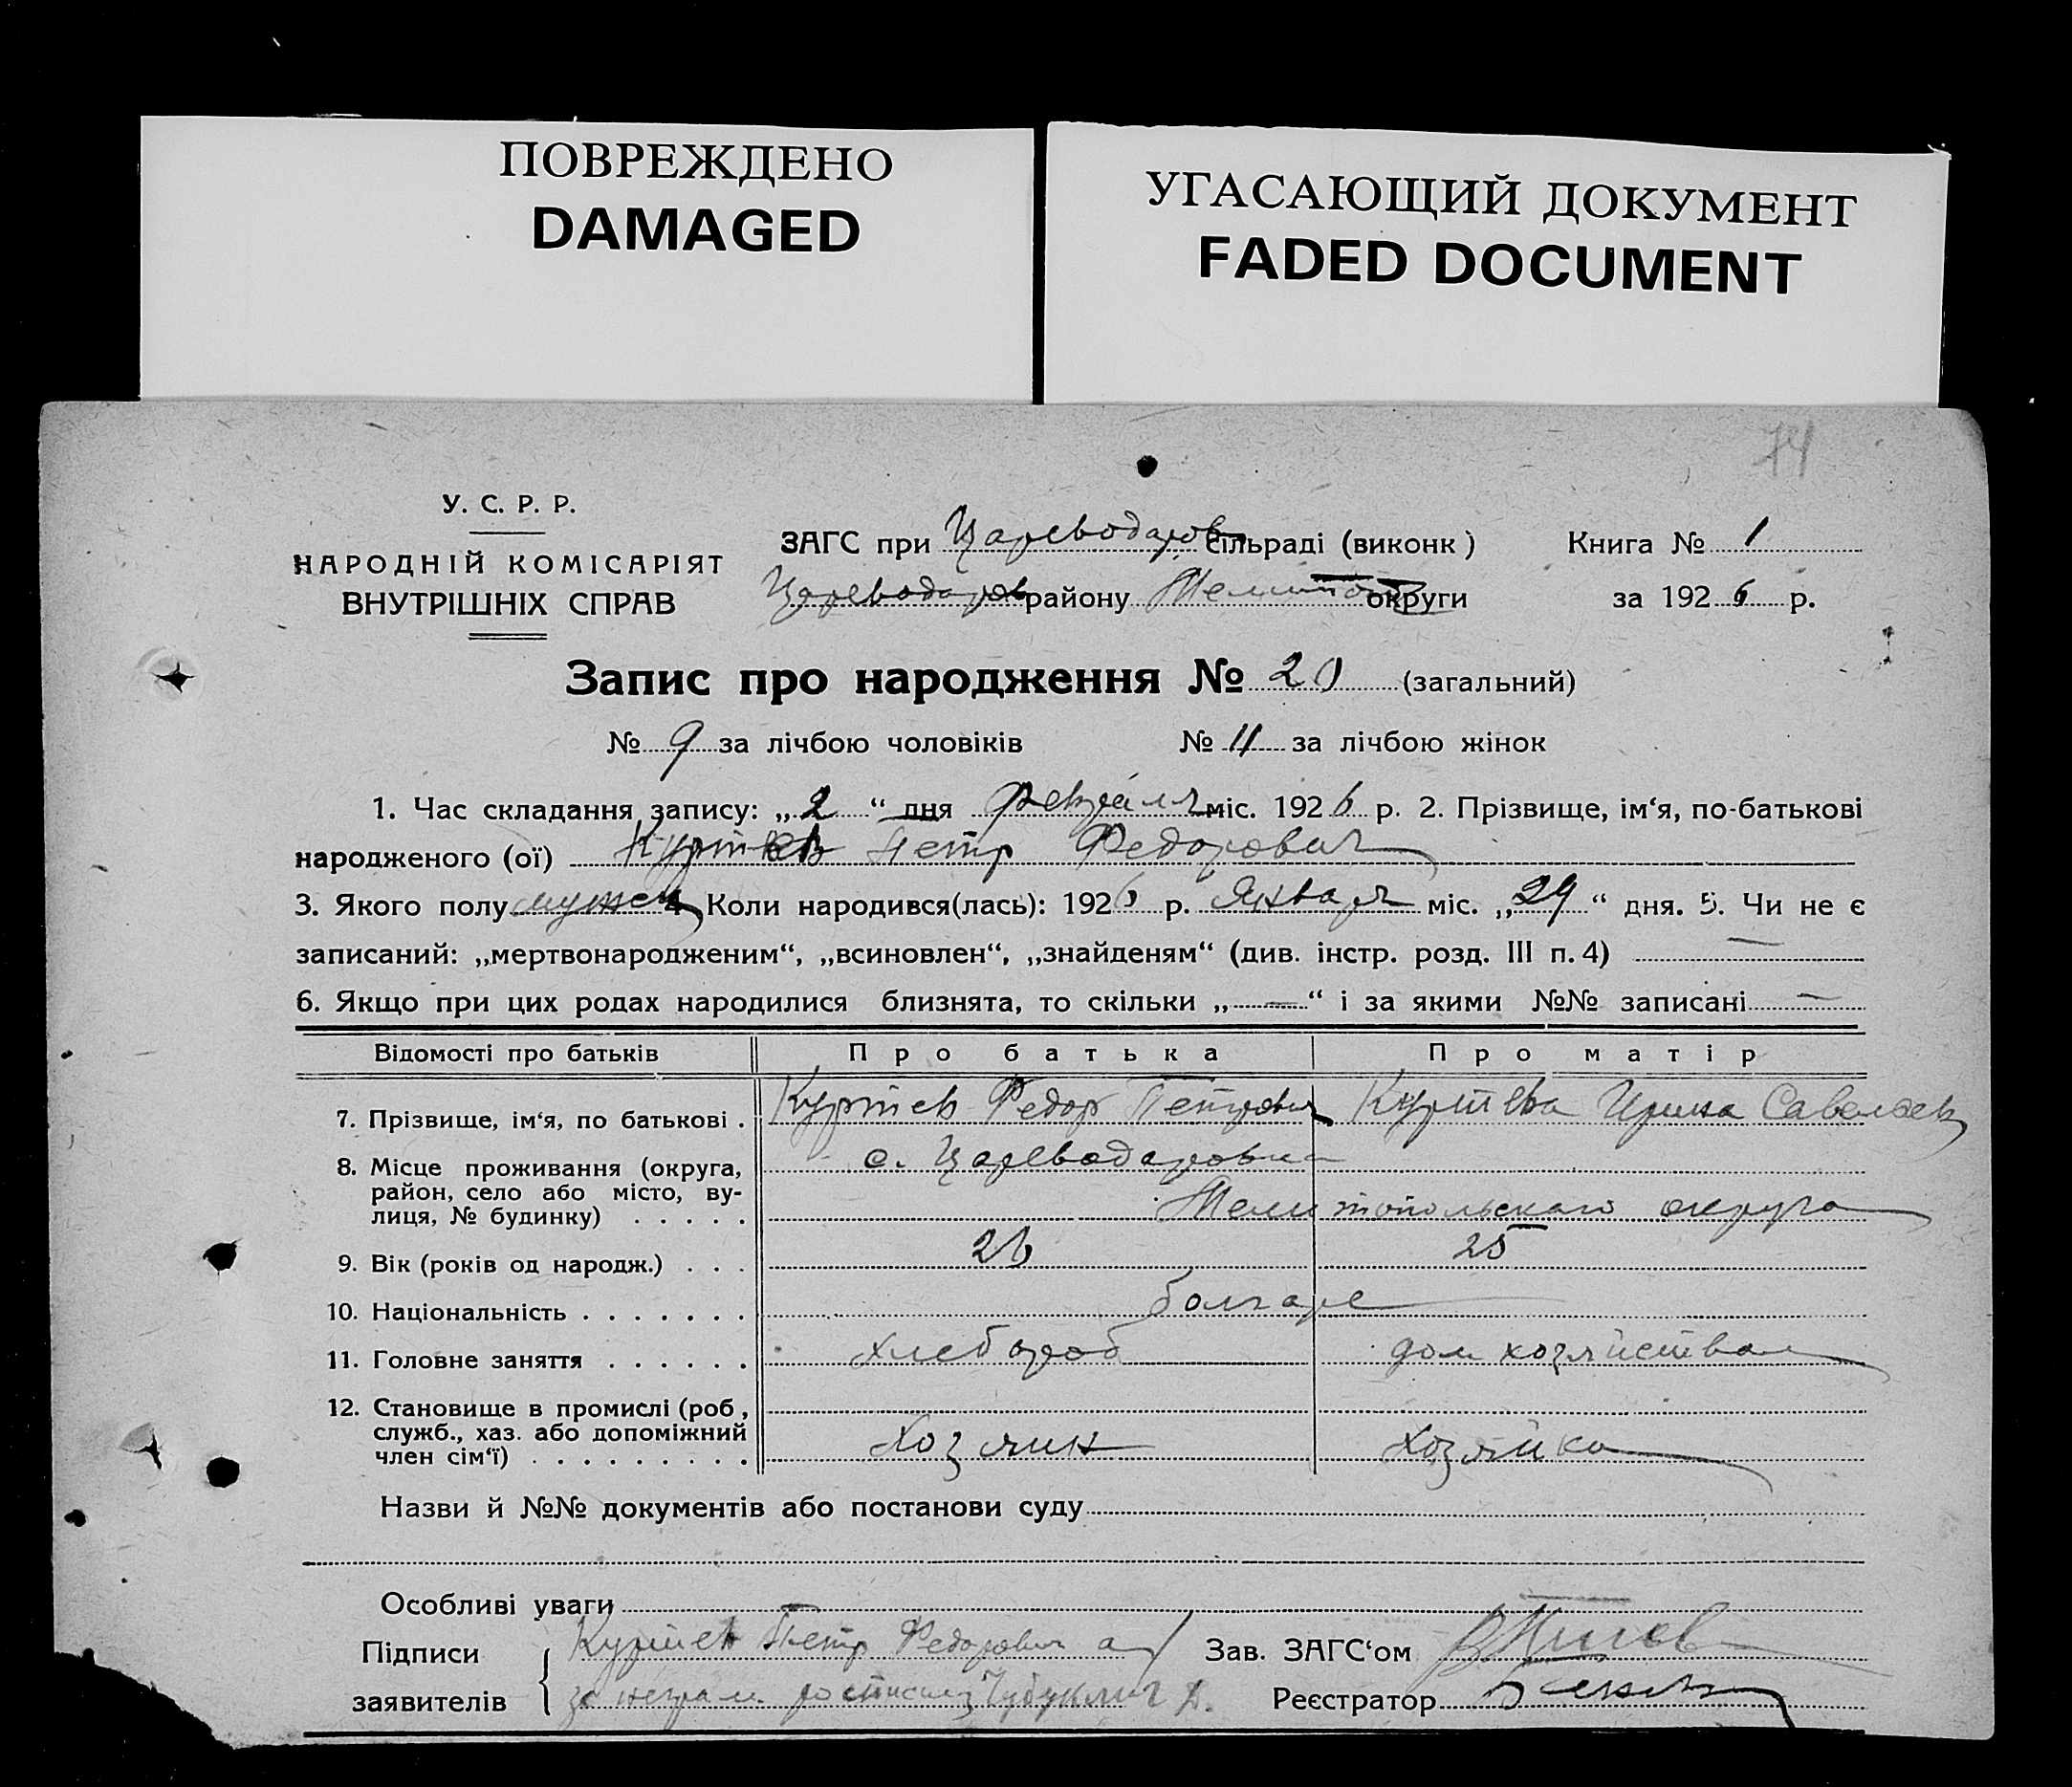 ПОВРЕЖДЕНО
DAMAGED
УГАСАЮЩИЙ ДОКУМЕНТ
FADED DOCUMENT
74
У. С. Р. Р.
НАРОДНІЙ КОМІСАРІЯТ
ВНУТРІШНІХ СПРАВ
ЗАГС при Цареводаров сільраді (виконк)
Цареводаров району Мелитоп округи
Книга № 1
за 1926 р.
Запис про народження № 20 (загальний)
№ 9 за лічбою чоловіків № 11 за лічбою жінок
1. Час складання запису: „2“ дня февраля міс. 1926 р. 2. Прізвище, ім‘я, по-батькові
народженого (ої) Куртев Петр Федорович
3. Якого полу мужск 4. Коли народився(лась): 1926 р. Января міс. „29“ дня. 5. Чи не є
записаний: „мертвонародженим“, „всиновлен“, „знайденям“ (див. інстр. розд. III п. 4) —
6. Якщо при цих родах народилися близнята, то скільки „—“ і за якими №№ записані —
Відомості про батьків Про батька Про матір
7. Прізвище, ім‘я, по батькові . Куртев Федор Петрович Куртева Ирина Савельев
8. Місце проживання (округа, район, село або місто, ву-лиця, № будинку) . . . . . с. Цареводаровка
Мелитопольскаго округа
9. Вік (років од народж.) . . . 26 25
10. Національність . . . . . . . болгаре
11. Головне заняття . . . . . . хлебороб дом хозяйством
12. Становище в промислі (роб, служб., хаз. або допоміжний член сім‘ї) . . . . . . . . . Хозяин Хозяйка
Назви й №№ документів або постанови суду
Особливі уваги
Підписи заявителів
Куртев Петр Федорович а
за неграм. росписался
Зав. ЗАГС‘ом
Реєстратор